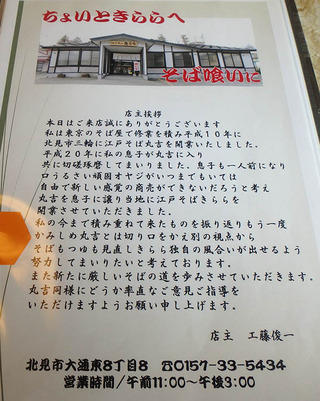 ちょいときららへ
そば喰いに
店主挨拶
本日はご来店誠にありがとうございます
私は東京のそば屋で修業を積み平成10年に
北見市三輪に江戸そば丸吉を開業いたしました。
平成20年に私の息子が丸吉に入り
共に切磋琢磨してまいりました。息子も一人前になり
口うるさい頑固オヤジがいつまでもいては
自由で新しい感覚の商売ができないだろうと考え
丸吉を息子に譲り当地に江戸そばきららを
開業させていただきました。
私の今まで積み重ねて来たものを振り返りもう一度
かみしめ丸吉とは切り口をかえ別の視点から
そばもつゆも見直しきらら独自の風合いが出せるよう
努力してまいりたいと考えております。
また新たに厳しいそばの道を歩みさせていただきます。
丸吉同様にどうか率直なご意見ご指導を
いただけますようお願い申し上げます。
店主 工藤俊一
北見市大通東8丁目8 ☎0157-33-5434
営業時間/午前11:00~午後3:00